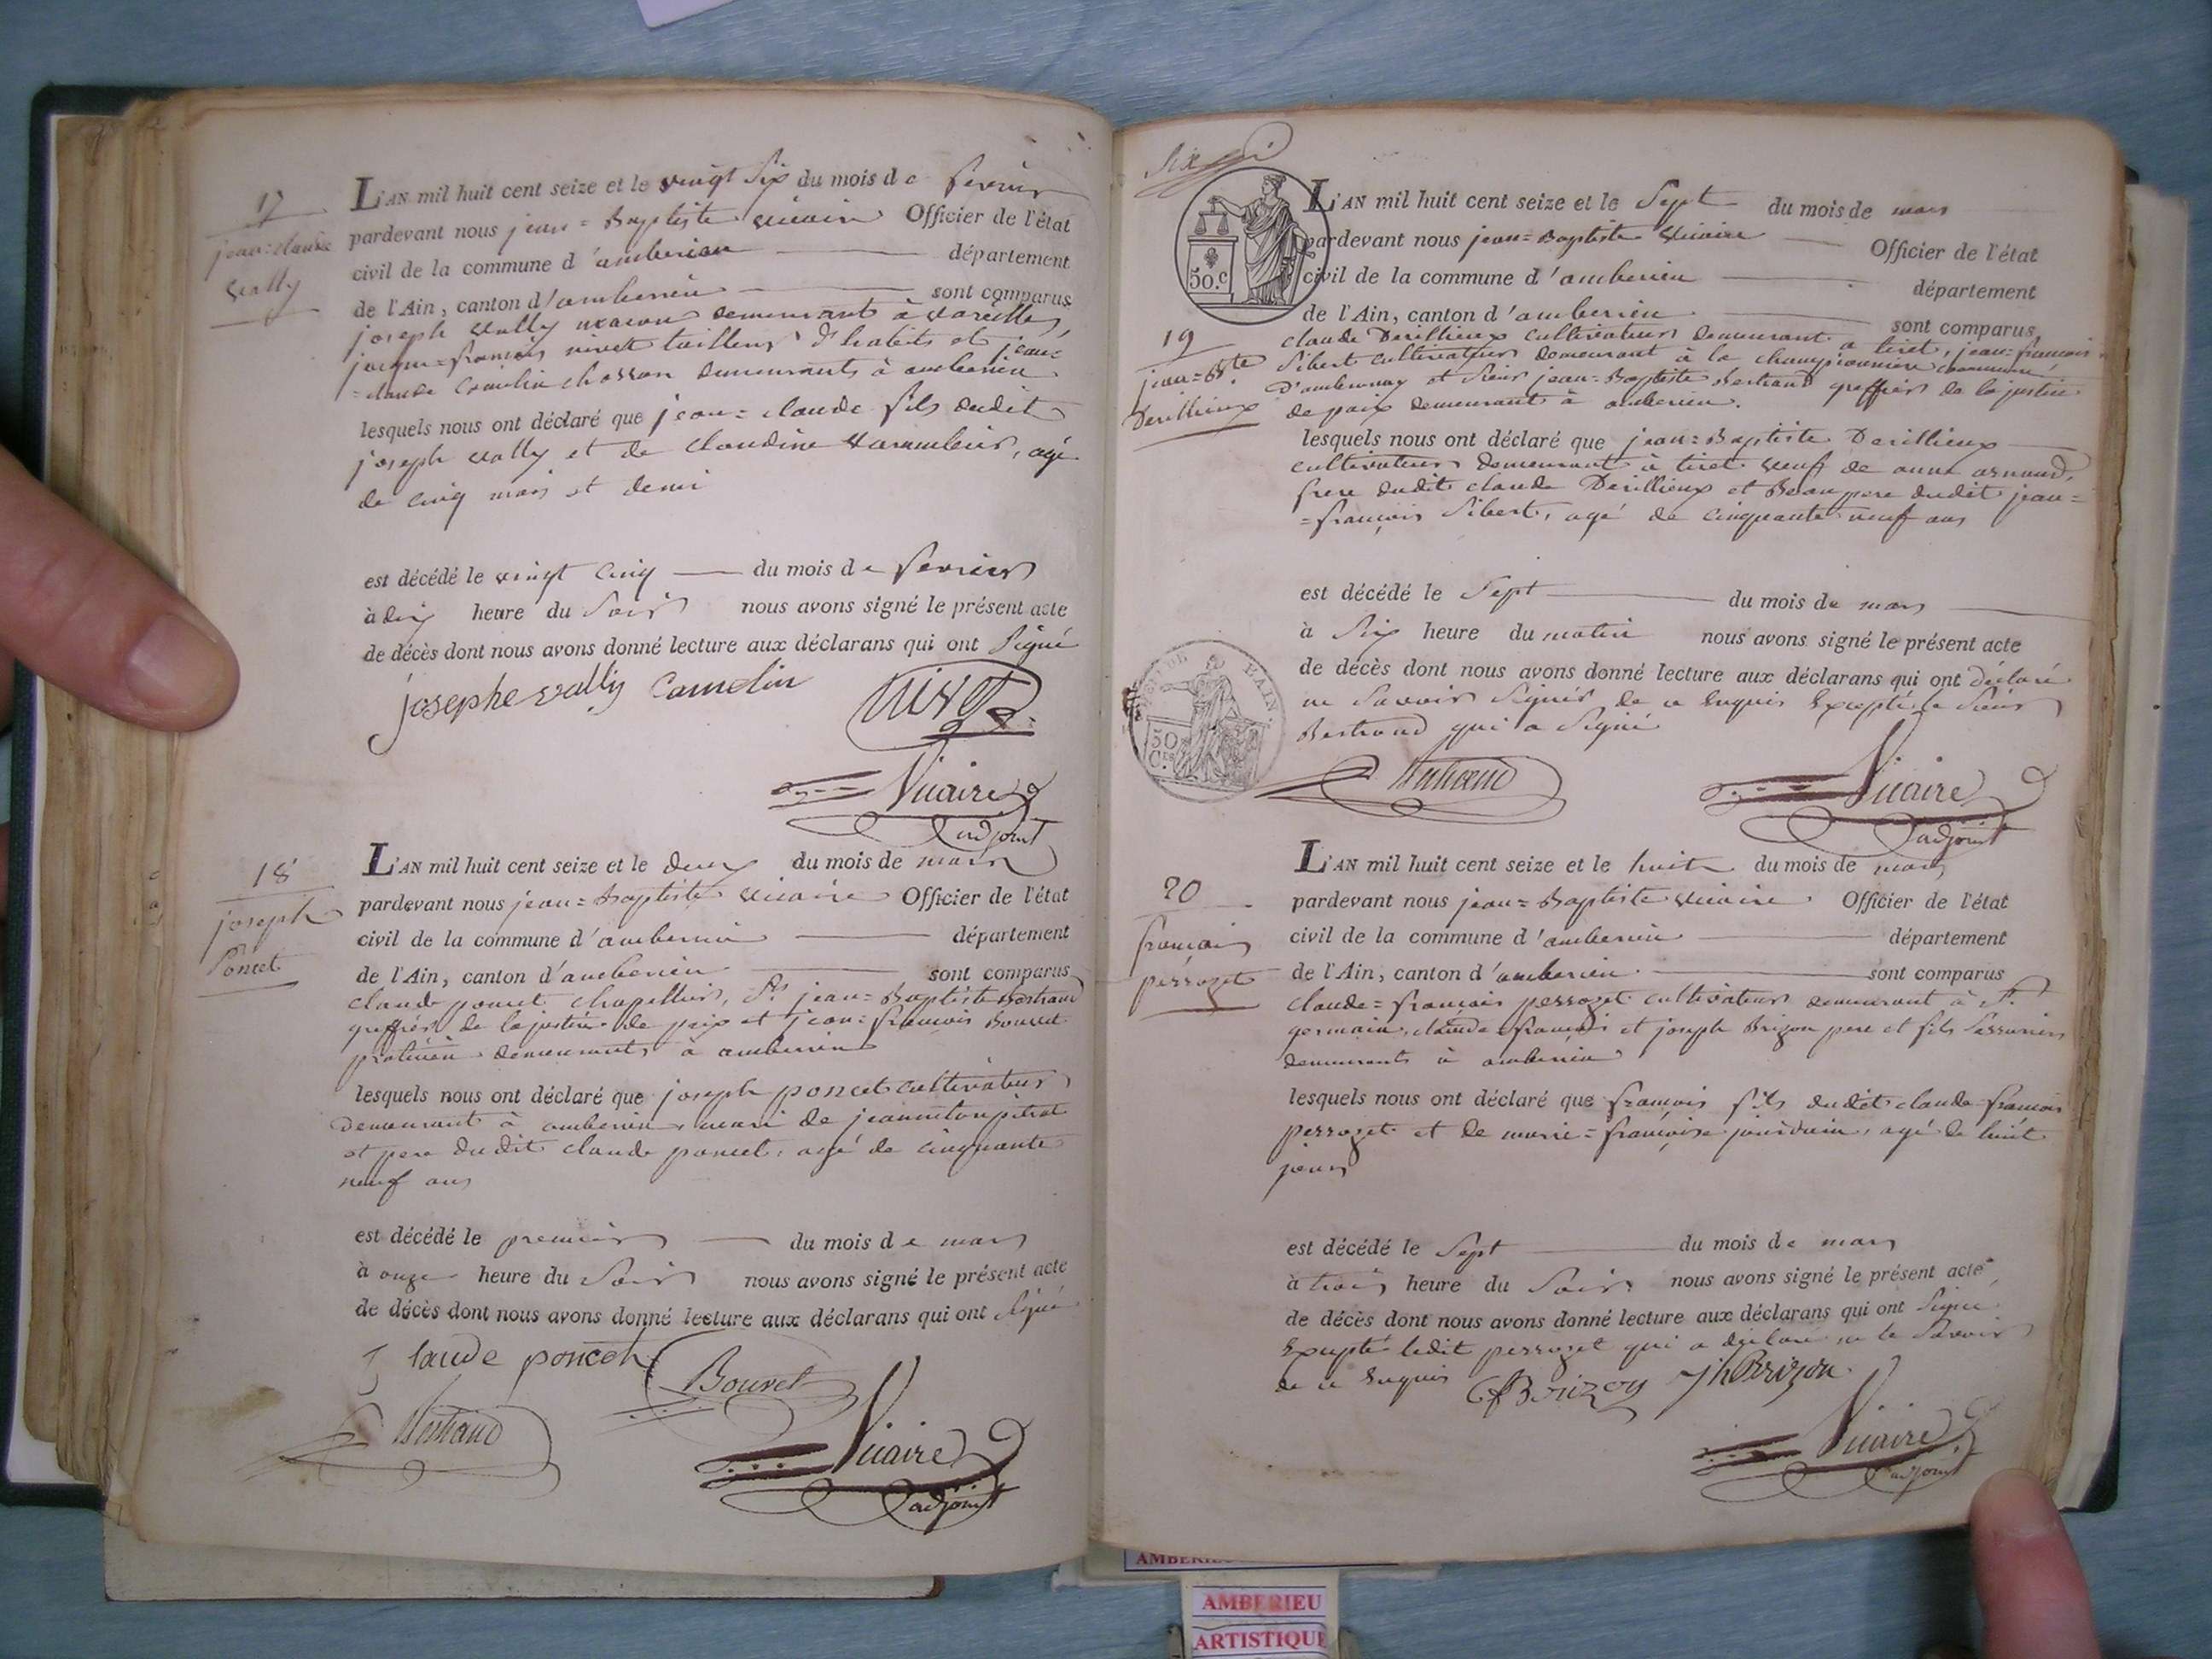 17
jean=claude
vally
L'AN mil huit cent seize et le vingt six du mois de fevrier
pardevant nous jean=Baptiste vicaire Officier de l'état
civil de la commune d'amberieu département
de l'Ain, canton d'amberieu sont comparus
joseph vally macon demeurant à vareilles,
jacque=francois nivet tailleur d'habits et jean=
=claude camelin chasson demeurants à amberieu
lesquels nous ont déclaré que jean=claude fils dudit
joseph vally et de claudine varambeir, agé
de cinq mois et demi
est décédé le vingt cinq du mois de fevrier
à dix heure du soir nous avons signé le présent acte
de décès dont nous avons donné lecture aux déclarans qui ont signé
josephe vally Camelin
NIVET
Vicaire
adjoint
18
joseph
Poncet
L'AN mil huit cent seize et le deux du mois de mars
pardevant nous jean=Baptiste vicaire Officier de l'état
civil de la commune d'amberieu département
de l'Ain, canton d'amberieu sont comparus
claude poncet chapellier, Sr jean=Baptiste Bertrand
greffier de la justice de paix et jean=francois Bouvet
praticien demeurants à amberieu
lesquels nous ont déclaré que joseph poncet cultivateur
demeurant à amberieu, mari de jeanneton pitrat
et pere dudit claude poncet, agé de cinquante
neuf ans
est décédé le premier du mois de mars
à onze heure du soir nous avons signé le présent acte
de décès dont nous avons donné lecture aux déclarans qui ont signé
Claude poncet Bouvet
Bertrand
Vicaire
adjoint
six
50.c
L'AN mil huit cent seize et le sept du mois de mars
pardevant nous jean=Baptiste vicaire Officier de l'état
civil de la commune d'amberieu département
de l'Ain, canton d'amberieu sont comparus
19
jean=Bte
Derillieux
claude Derillieux cultivateur demeurant a tiret, jean=francois
sibert cultivateur demeurant à la championniere commune
d'ambronay et sieur jean=Baptiste Bertrand greffier de la justice
de paix demeurant à amberieu.
lesquels nous ont déclaré que jean=Baptiste Derillieux
cultivateur demeurant à tiret veuf de anne arnaud,
frere dudit claude Derillieux et Beaupere dudit jean=
=françois sibert, agé de cinquante neuf ans
est décédé le sept du mois de mars
à six heure du matin nous avons signé le présent acte
de décès dont nous avons donné lecture aux déclarans qui ont déclaré
ne savoir signer de ce enquis excepté le sieur
Bertrand qui a signé
50
Cs
Bertrand
Vicaire
adjoint
20
francois
perrozet
L'AN mil huit cent seize et le huit du mois de mars
pardevant nous jean=Baptiste vicaire Officier de l'état
civil de la commune d'amberieu département
de l'Ain, canton d'amberieu sont comparus
claude=francois perrozet cultivateur demeurant à St.
germain, claude=francois et joseph Brizon pere et fils serruriers
demeurants à amberieu
lesquels nous ont déclaré que francois fils dudit claude francois
perrozet et de marie=françoise jourdain, agé de huit
jours
est décédé le sept du mois de mars
à trois heure du soir nous avons signé le présent acte
de décès dont nous avons donné lecture aux déclarans qui ont signé
excepté ledit perrozet qui a déclaré ne le savoir
de ce enquis CfBrizon JhBrizon
Vicaire
adjoint
AMBERIEU
ARTISTIQUE